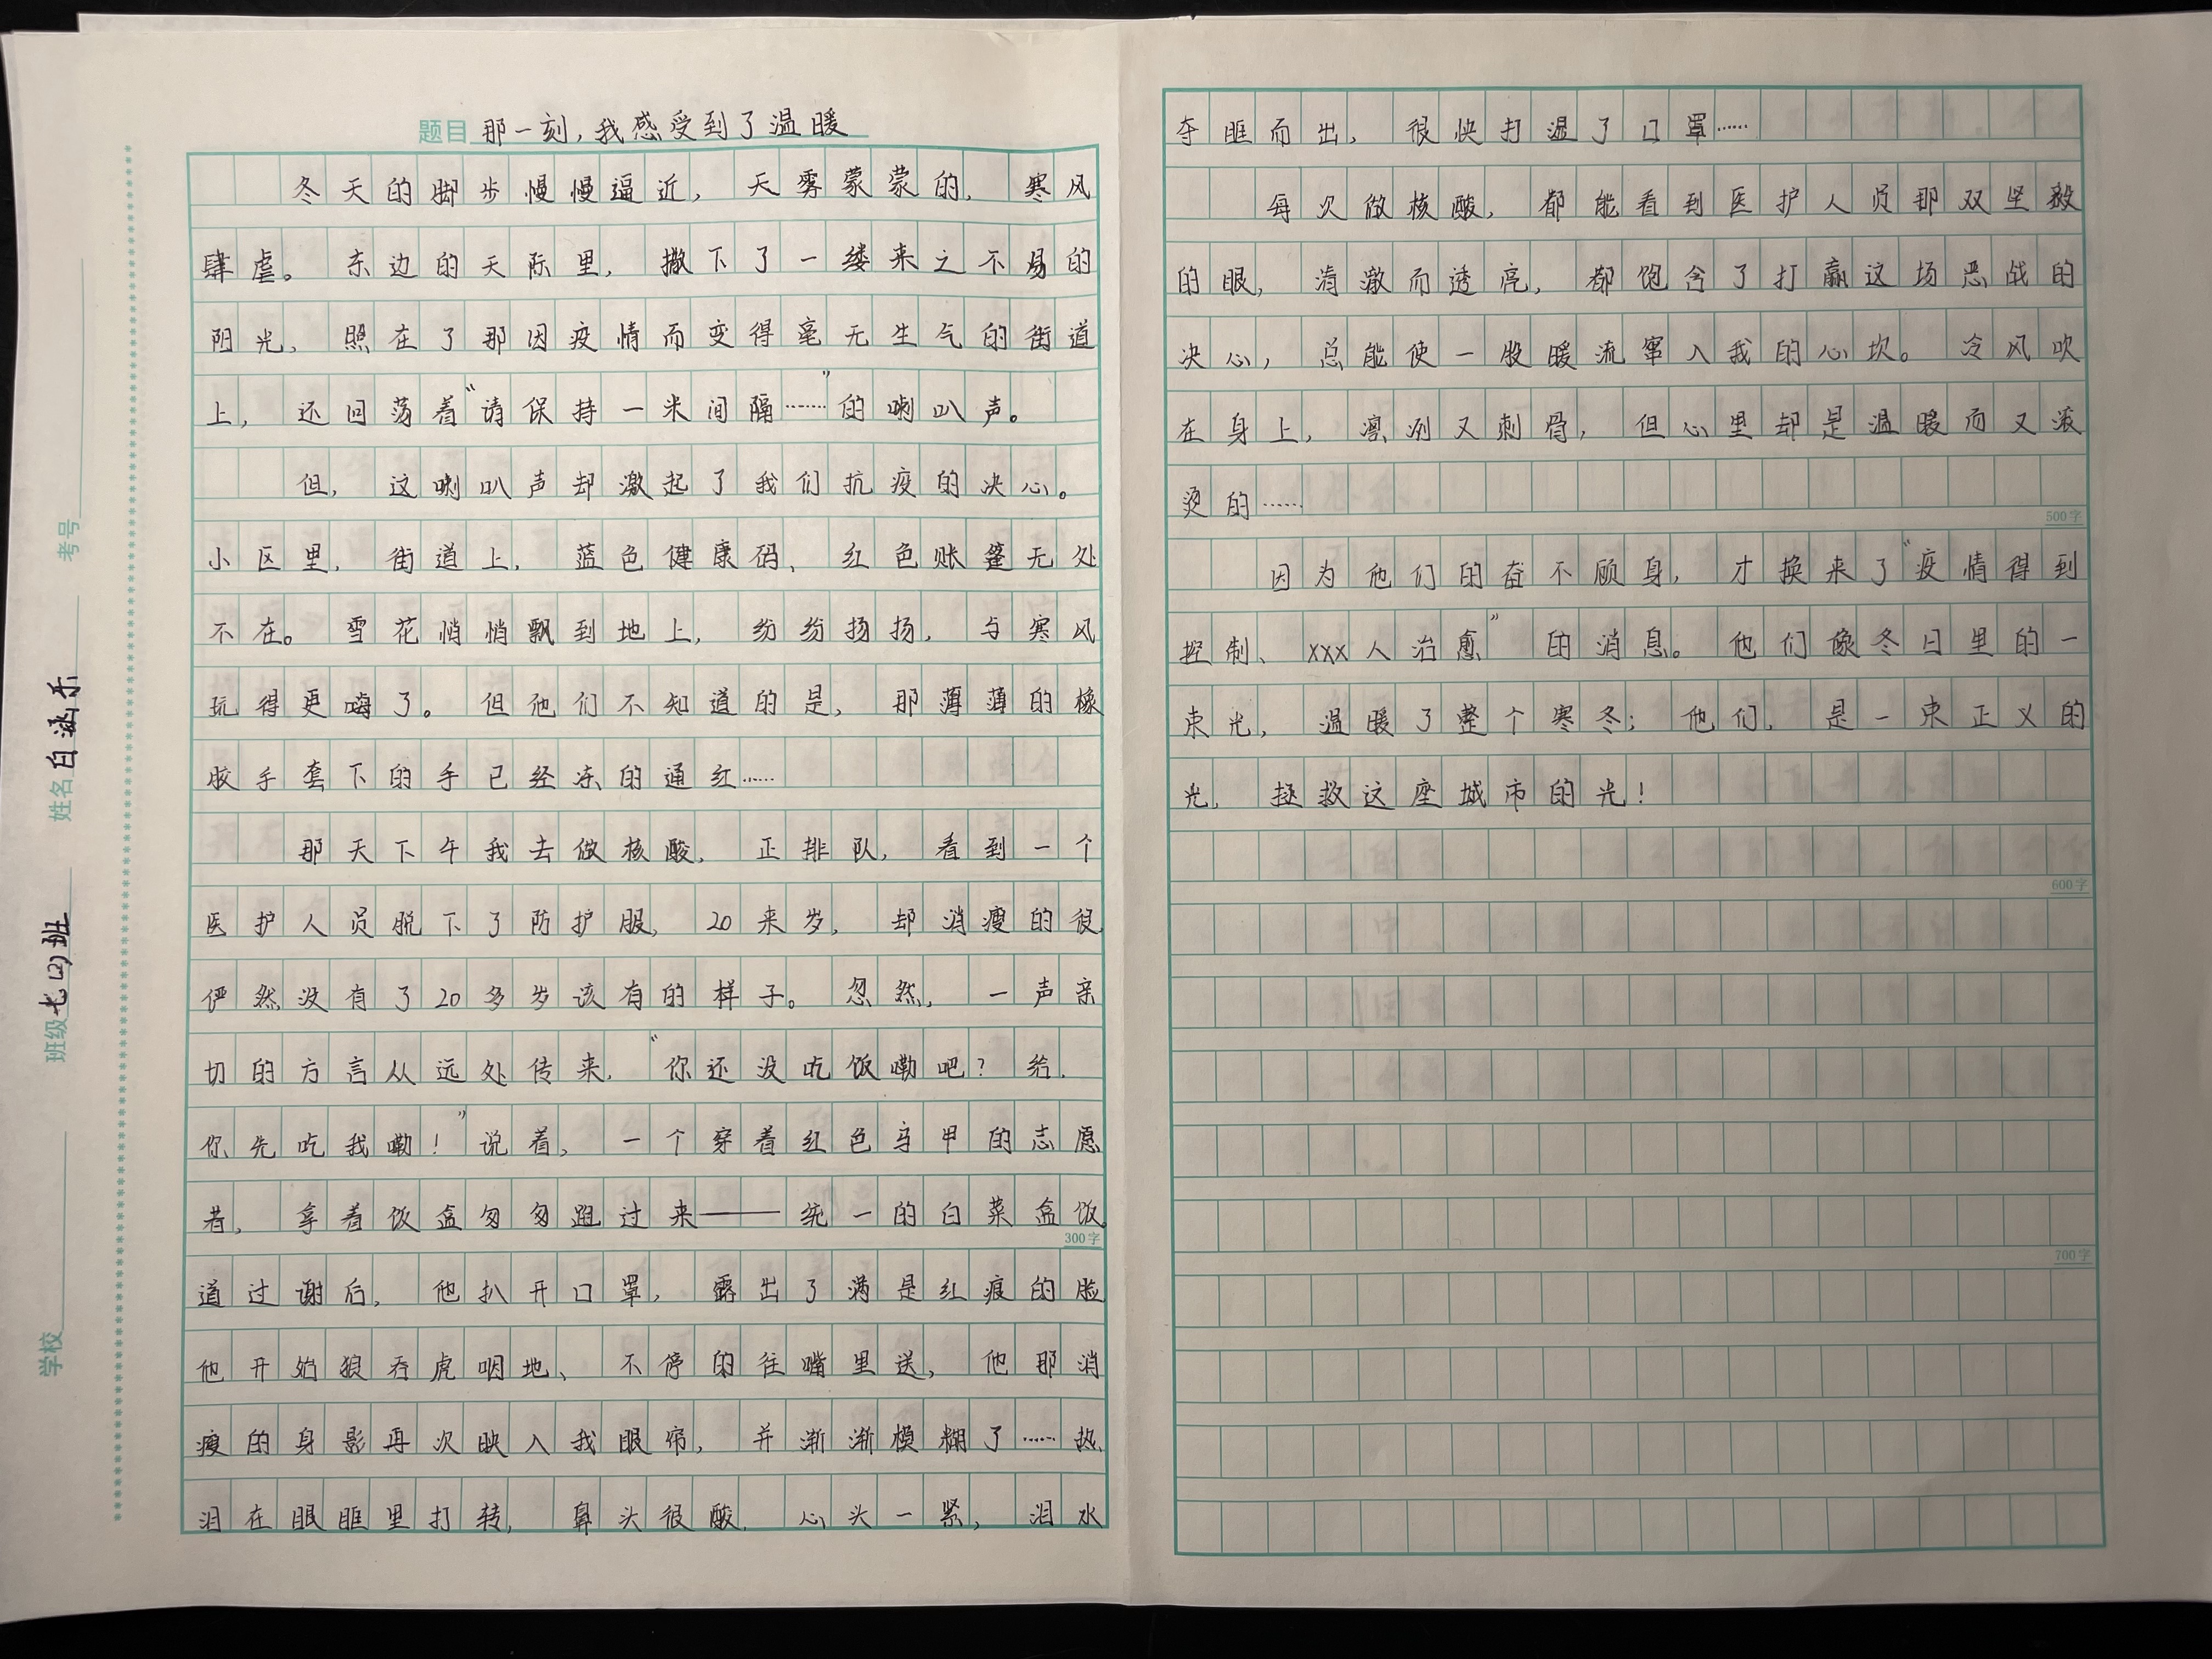 题目 那一刻，我感受到了温暖
冬天的脚步慢慢逼近，天雾蒙蒙的，寒风
肆虐。东边的天际里，撒下了一缕来之不易的
阳光，照在了那因疫情而变得毫无生气的街道
上，还回荡着“请保持一米间隔……”的喇叭声。
但，这喇叭声却激起了我们抗疫的决心。
小区里，街道上，蓝色健康码、红色账篷无处
不在。雪花悄悄飘到地上，纷纷扬扬，与寒风
玩得更嗨了。但他们不知道的是，那薄薄的橡
胶手套下的手已经冻的通红……
那天下午我去做核酸，正排队，看到一个
医护人员脱下了防护服，20来岁，却消瘦的很，
俨然没有了20多岁该有的样子。忽然，一声亲
切的方言从远处传来，“你还没吃饭嘞吧？给，
你先吃我嘞！”说着，一个穿着红色马甲的志愿
者，拿着饭盒匆匆跑过来——统一的白菜盒饭。
300字
道过谢后，他扒开口罩，露出了满是红痕的脸
他开始狼吞虎咽地、不停的往嘴里送，他那消
瘦的身影再次映入我眼帘，并渐渐模糊了……热
泪在眼眶里打转，鼻头很酸，心头一紧，泪水
夺眶而出，很快打湿了口罩……
每次做核酸，都能看到医护人员那双坚毅
的眼，清澈而透亮，都饱含了打赢这场恶战的
决心，总能使一股暖流窜入我的心坎。冷风吹
在身上，凛冽又刺骨，但心里却是温暖而又滚
烫的……
500字
因为他们的奋不顾身，才换来了“疫情得到
控制、xxx人治愈”的消息。他们像冬日里的一
束光，温暖了整个寒冬；他们，是一束正义的
光，拯救这座城市的光！
600字
700字
学校
班级 七(2)班
姓名 白涵乐
考号